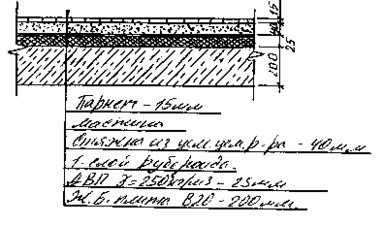 15
40
25
200
Паркет - 15мм
мастика
Стяжка из цем. р-ра - 40мм
1 слой рубероида
ДВП γ=250кг/м3 - 25мм
Ж.Б. плита В20 - 200мм